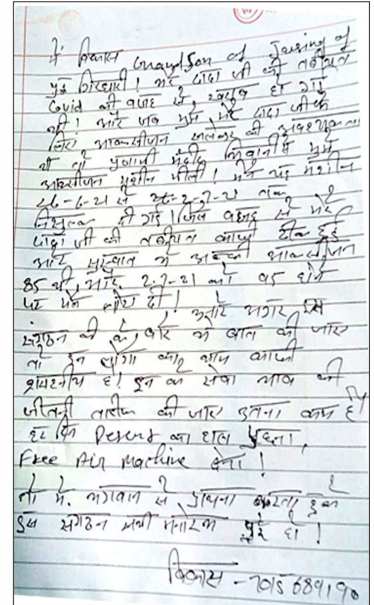 मैं विकास Grand Son of Jaising of
पुर गिरधारी ! मेरे दादा जी की तबीयत
Covid की वजह से खराब हो गई
थी ! और जब मुझे मेरे दादा जी के
लिए आक्सीजन सलेंडर की आवश्यकता
थी तो पंजाबी मंदिर भिवानी से मुझे
आक्सीजन मशीन मिली ! मुझे यह मशीन
से 2-7-21 तक
निशुल्क दी गई ! जिस वजह से मेरे
दादा जी की तबीयत काफी ठीक हुई
और शुरुवात में उनका आक्सीजन
85 थी, और 2-7-21 को 95 होने
पर मैंने लौटा दी !
और अगर इस
संगठन के बारे में बात की जाए
तो इन लोगों का काम काफी
सराहनीय है ! इन के सेवा भाव की
जितनी तारीफ की जाए उतना कम है
हर का हाल पूछना,
Free Air Machine देना !
तो मैं भगवान से प्रार्थना करता हूं कि
इस संगठन सभी मनोरथ पूरे हो !
विकास -